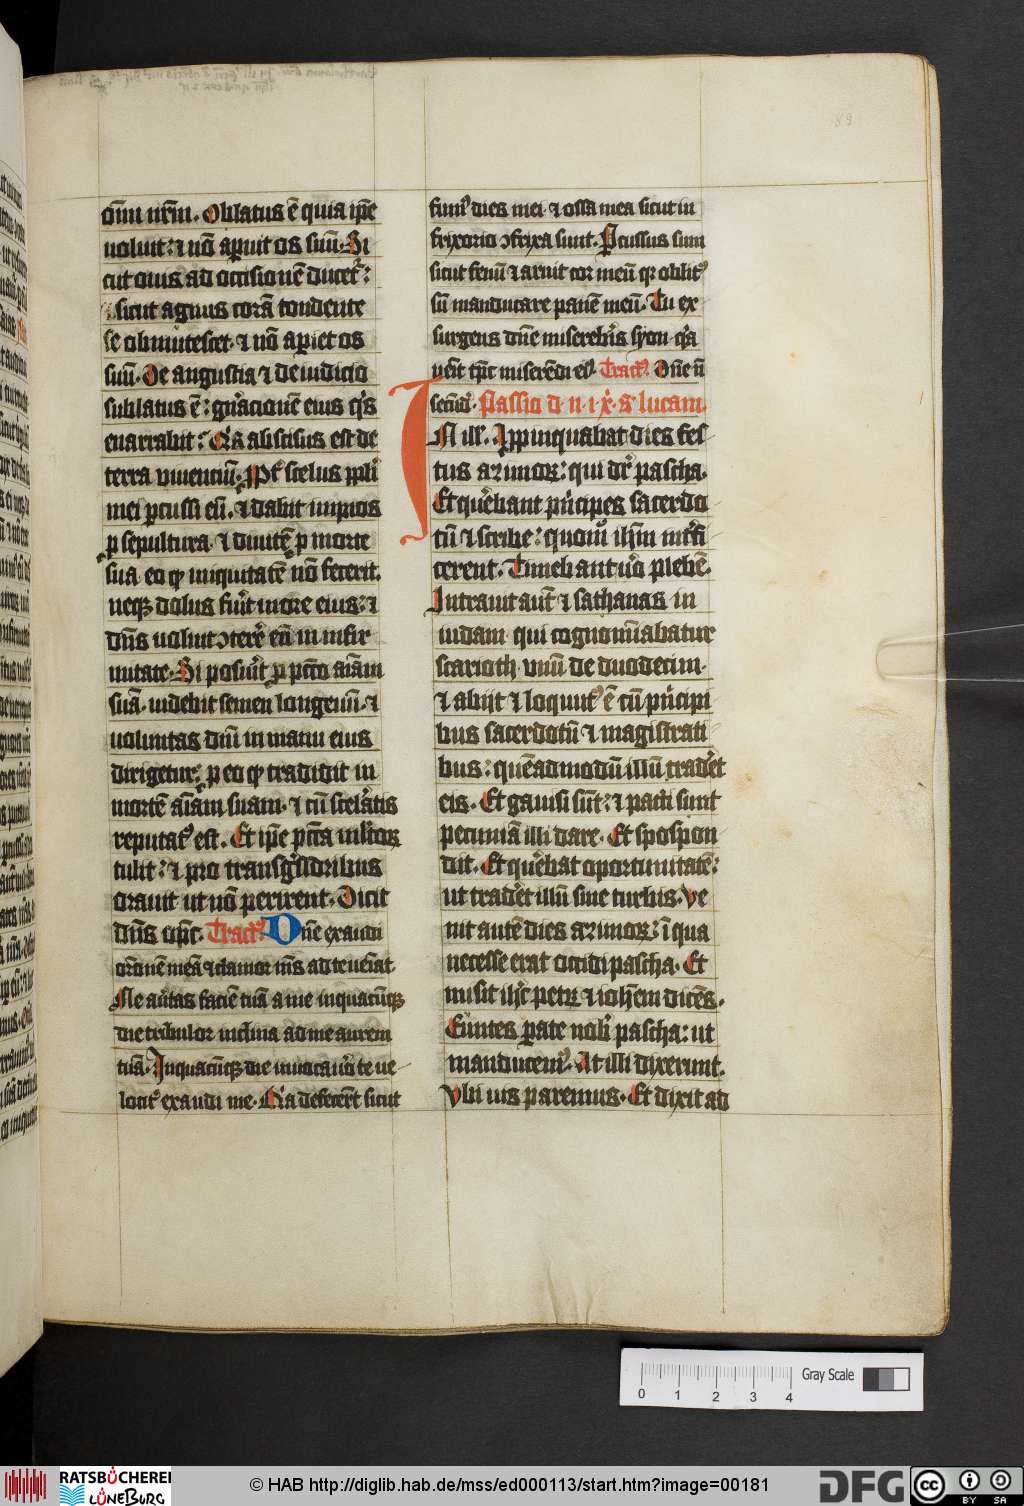 89
om̄i nr̄m. Oblatus ē quia ip̄e
uoluit: ⁊ nō aꝑuit os suū. Si
cut ouis ad occisionē ducet᷑:
⁊ sicut agnus corā tondente
se obmutescet. ⁊ nō aꝑiet os
suū. De angustia ⁊ de iudicio
sublatus ē: gn̄acionē eius qͥs
enarrabit: Qͥa abscisus est de
terra viuenciū. Ꝓpt᷑ scelus ppl̓i
mei ꝑcussi eū. ⁊ dabit impios
ꝑ sepultura ⁊ diuitē ꝑ morte
sua eo ꝙ iniquitatē nō fecerit.
neqꝫ dolus fu̓it in ore eius: ⁊
dn̄s uoluit ꝯterē eū in infir
mitate. Si posu̓it ꝓ pctō aīam
suā. uidebit semen longeuū. ⁊
uoluntas dn̄i in manu eius
dirigetur: ꝓ eo ꝙ tradidit in
mortē aīam suam. ⁊ cū scelͣatis
reputatꝰ est. Et ip̄e pctā ml̓torꝝ
tulit: ⁊ pro transgͣssoribus
orauit ut nō perirent. Dicit
dn̄s op̄c. Tract᷒ Dn̄e exaudi
or̄onē meā ⁊ clamor mꝰs ad te uen̄iat
Ne au̓tas faciē tuā a me in quacūqꝫ
die tribulor inclina ad me aurem
tuā. In quacūqꝫ die inuocau̓o te ue
locitͥ exaudi me. Qͥa defecer̄t sicut
fumꝰ dies mei. ⁊ ossa mea sicut in
frixorio ꝯfrixa sunt. Ꝑcussus sum
sicut fenū ⁊ aruit cor meū qꝛ oblitꝰ
sū manducare panē meū. Tu ex
surgens dn̄e misereb̓is syon qͥa
uen̄it tp̄c miserēdi eiꝰ. Tractꝰ. Dn̄e n̄
secūdū. Passio d. n. i. x̄. s. lucam.
IN ill̓. Appinquabat dies fes
tus aꝫimorꝝ: qui dr̄ pascha.
Et quͥebant pͥncipes sacerdo
tū ⁊ scribe: quomͦ ih̄m int̓fi
cerent. Timebant uͦo plebē.
Intrauit aut̄ ⁊ sathanas in
iudam qui cognomiābatur
scarioth vnū de duodecim.
⁊ abijt ⁊ loquutꝰ ē cū pͥncipi
bus sacerdotū ⁊ magistrati
bus: quēadmodū illū trad̓et
eis. Et gauisi sūt: ⁊ pacti sunt
pecuniā illi dare. Et spopon
dit. Et quͥebat oportunitatē:
ut trad̓et illū sine turbis. Ve
nit autē dies aꝫimorꝝ: ī qua
necesse erat occidi pascha. Et
misit ih̄c petꝝ ⁊ ioh̄em dicēs.
Euntes parate nobͥ pascha: ut
manducemꝰ. At illi dixerunt.
Vbi uis paremus. Et dixit ad
Gray Scale
0 1 2 3 4
RATSBÜCHEREI
LÜNEBURG
© HAB http://diglib.hab.de/mss/ed000113/start.htm?image=00181
DFG
cc BY SA